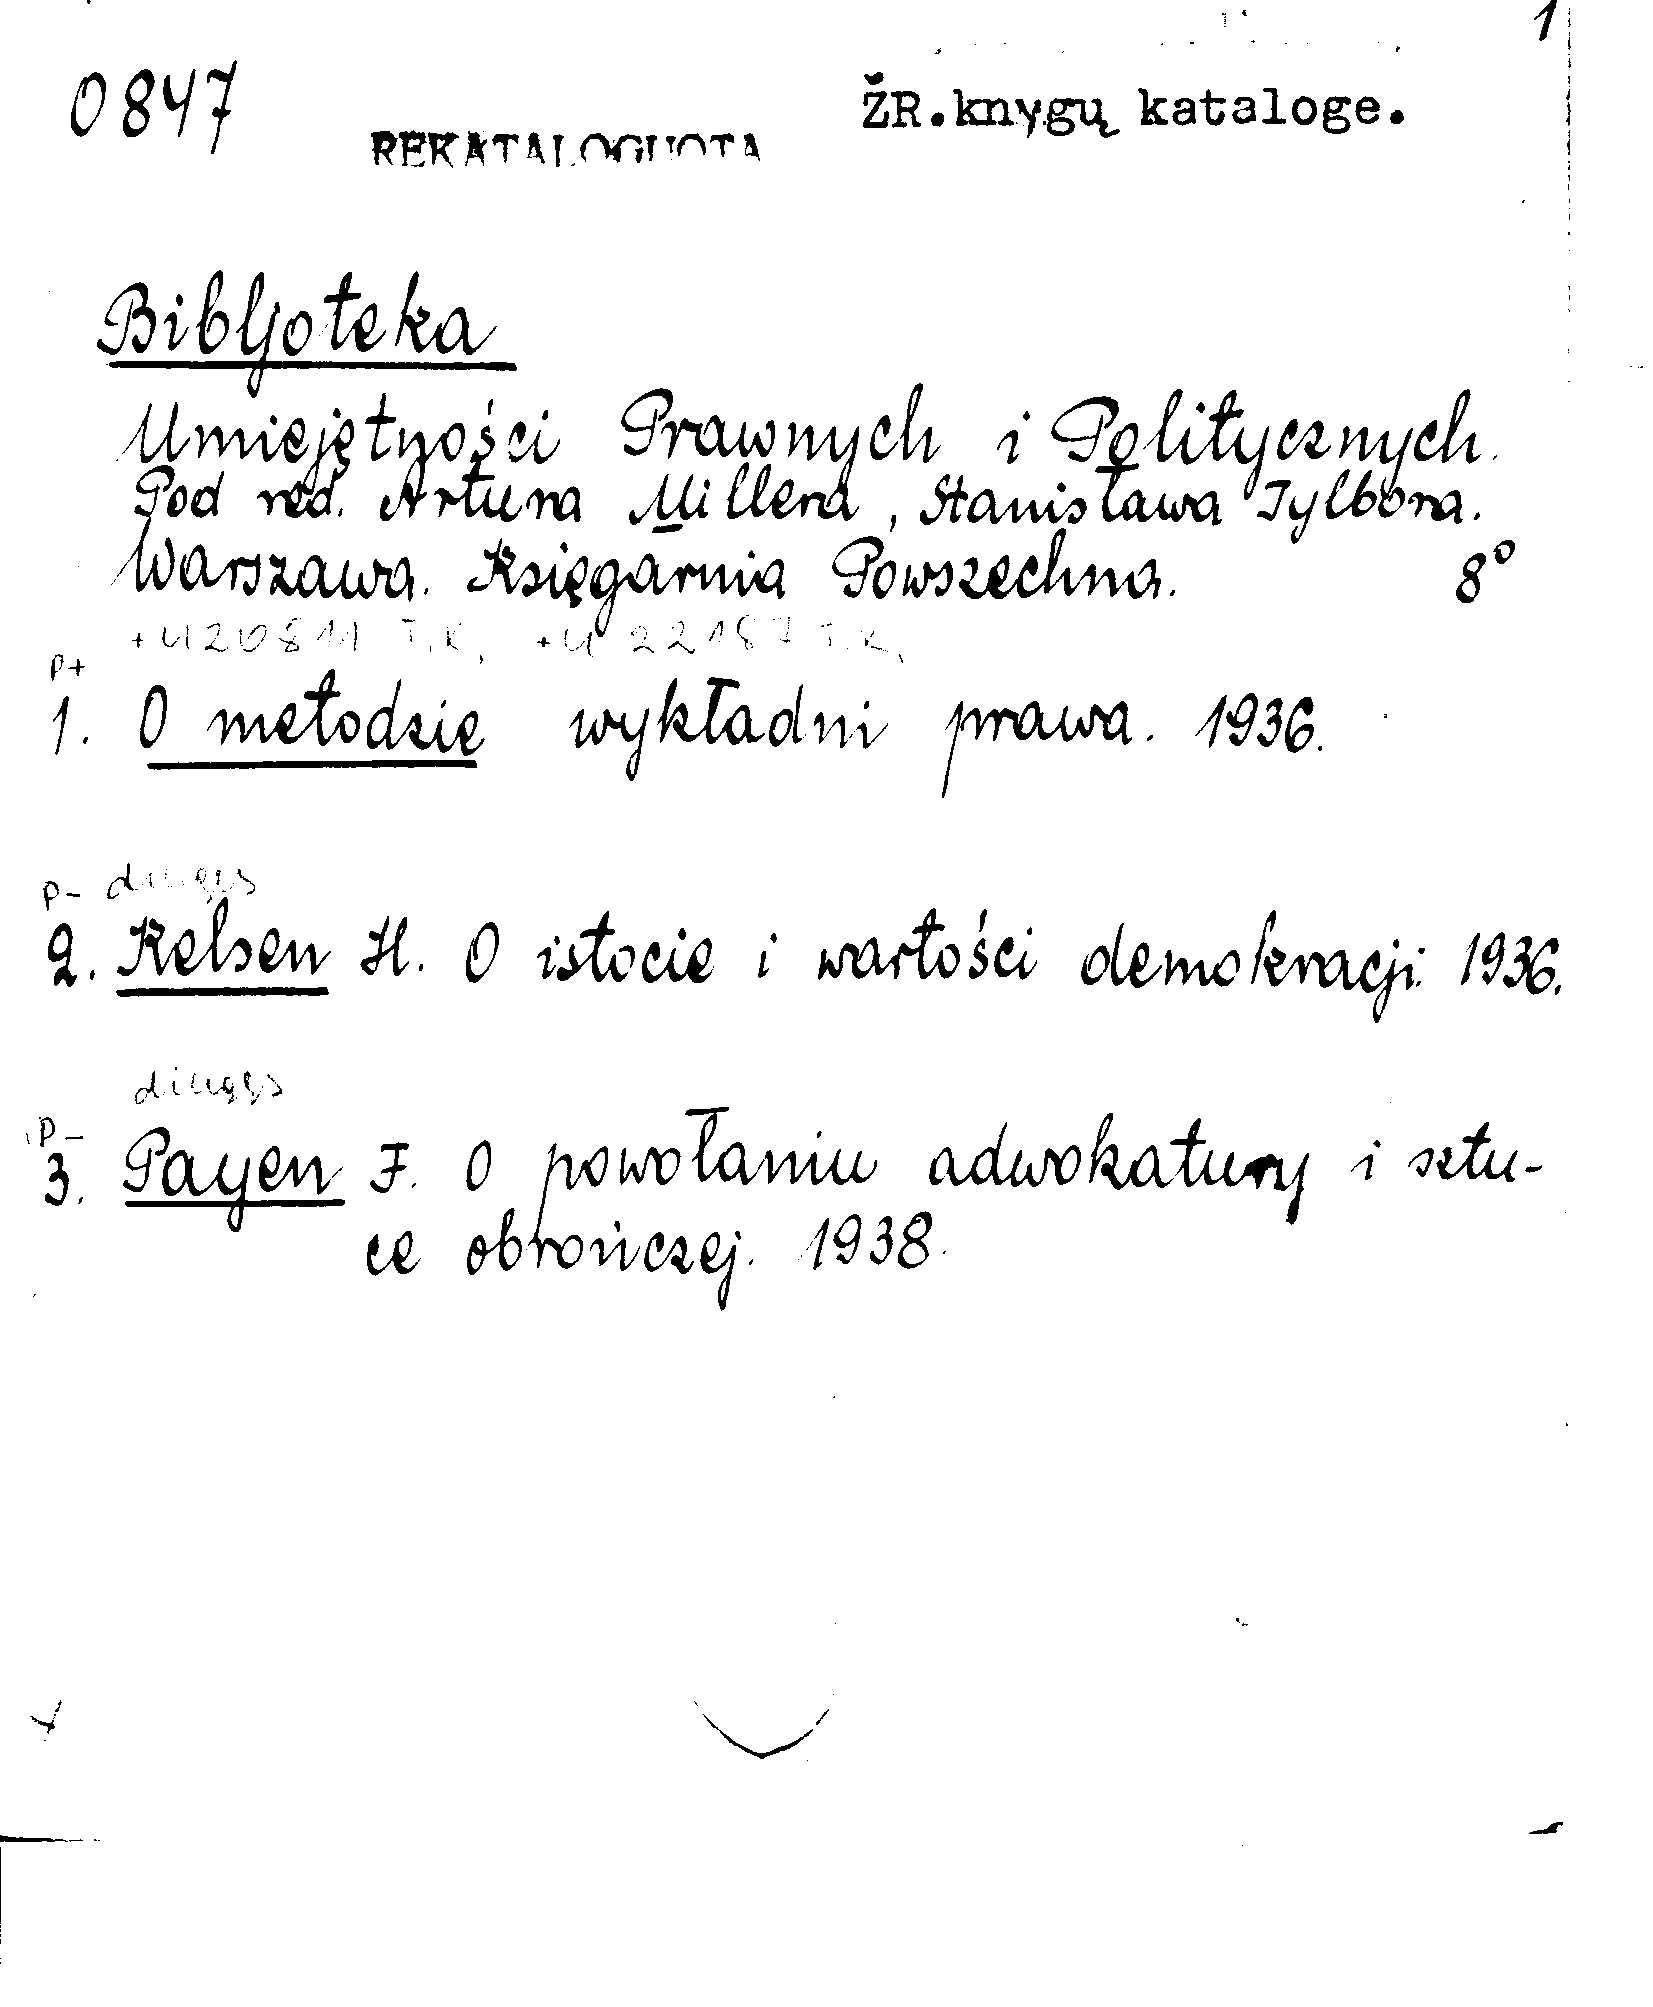 1
0847
ŽR.knygų kataloge.
REKATALOGUOTA
Bibljoteka
Umiejętności Prawnych i Politycznych.
Pod red. Artura Millera, Stanisława Tylbora.
Warszawa. Księgarnia Powszechna. 8°
+420811 T.R, +4 22187 T.R,
P+
1. O metodzie wykładni prawa. 1936.
P- dingęs
2. Kelsen H. O istocie i wartości demokracji. 1936.
dingęs
P-
3. Payen F. O powołaniu adwokatury i sztu-
ce obrończej. 1938.